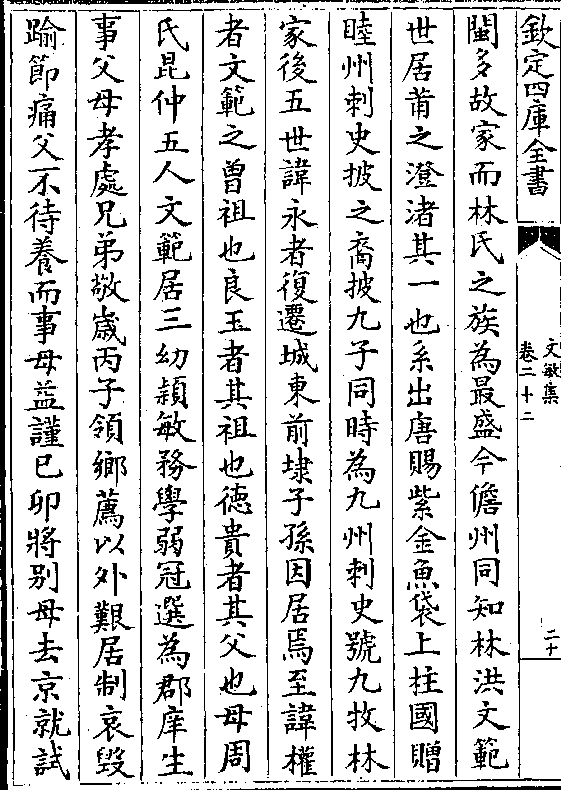 欽定四庫全書
文敏集
卷二十二
二十
閩多故家而林氏之族為最盛今儋州同知林洪文範
世居莆之澄渚其一也系出唐賜紫金魚袋上柱國贈
睦州刺史披之裔披九子同時為九州刺史號九牧林
家後五世諱永者復遷城東前埭子孫因居焉至諱權
者文範之曾祖也良玉者其祖也徳貴者其父也母周
氏昆仲五人文範居三幼潁敏務學弱冠選為郡庠生
事父母孝處兄弟敬歳丙子領鄉薦以外艱居制哀毀
踰節痛父不待養而事母益謹已卯將别母去京就試